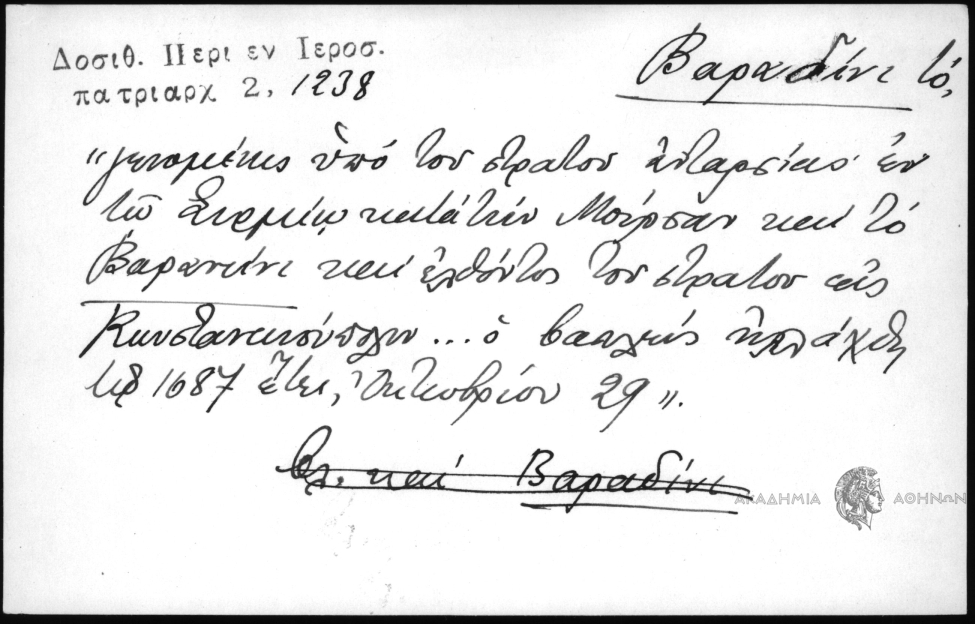 Δοσιθ. Περι εν Ιεροσ.
πατριαρχ 2, 1238
Βαραδίνι τό,
"γενομένης ὑπό τοῦ στρατοῦ ἀνταρσίας ἐν
τῷ Σιρμίῳ κατά τήν Μούρσαν καί τό
Βαραντίνι καί ἐλθόντος τοῦ στρατοῦ εἰς
Κωνσταντινούπολιν ... ὁ βασιλεύς
τῷ 1687 ἔτει, Ὀκτωβρίου 29".
βλ. καί Βαραδίνι
ΑΚΑΔΗΜΙΑ ΑΘΗΝΩΝ